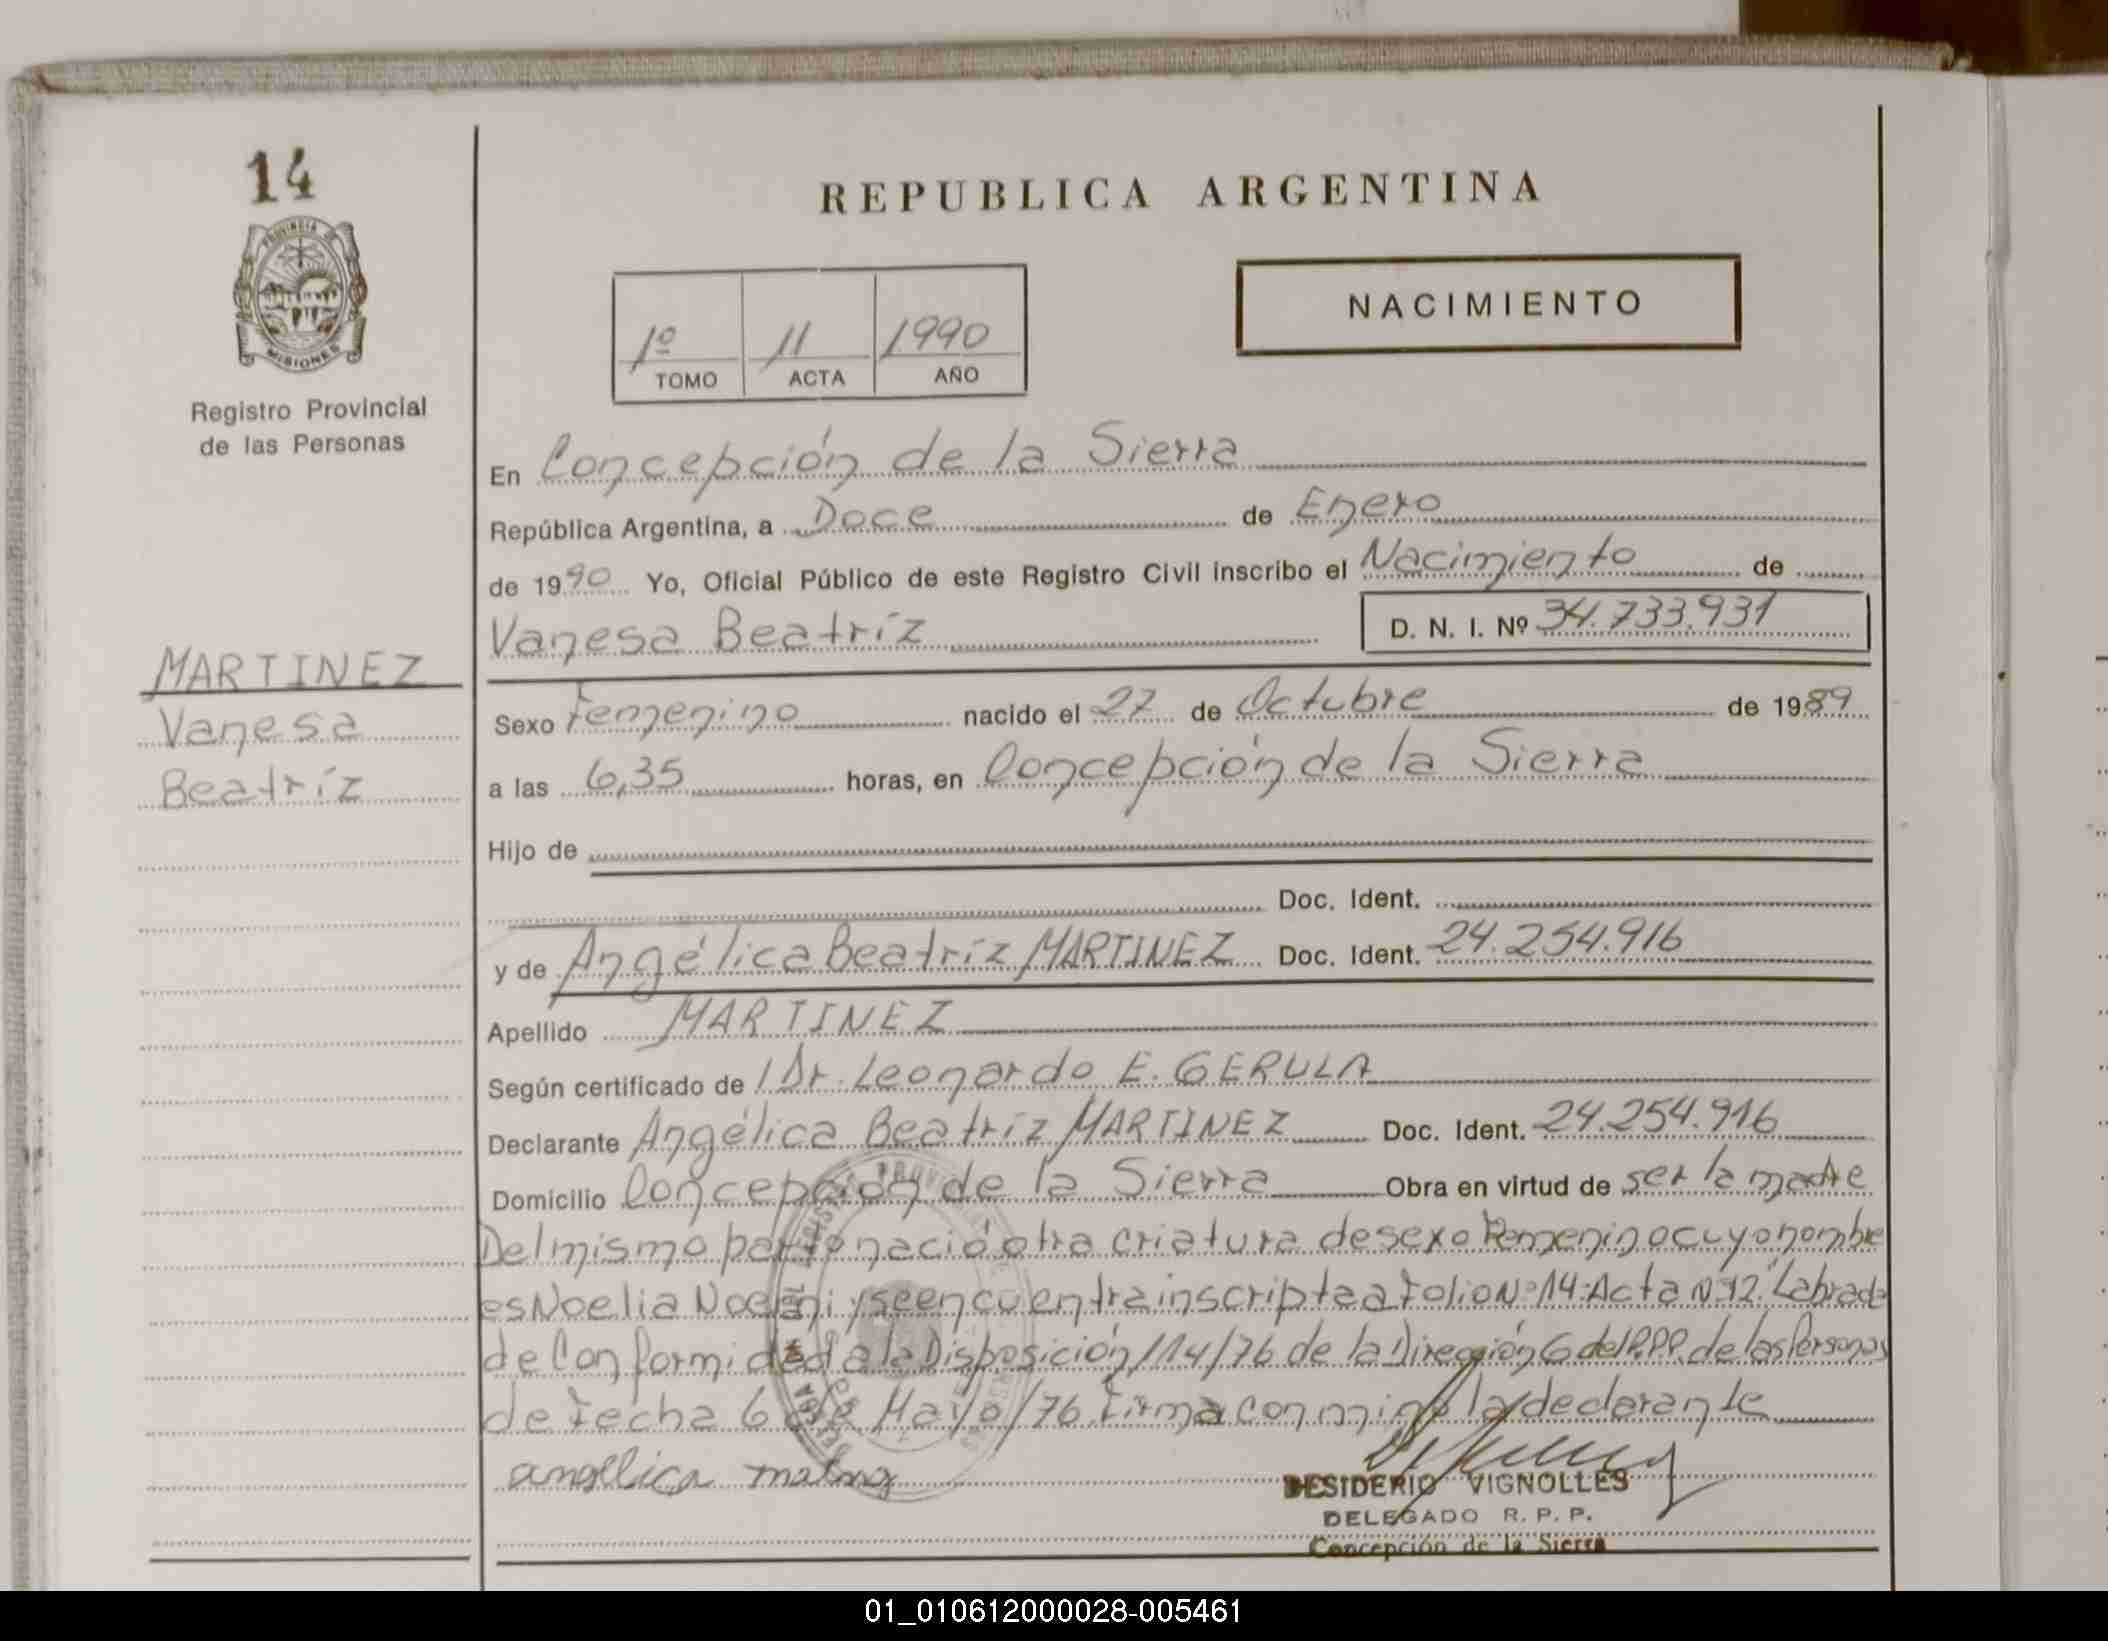 14
PROVINCIA DE
MISIONES
Registro Provincial
de las Personas
MARTINEZ
Vanesa
Beatríz
REPUBLICA ARGENTINA
1º 11 1990
TOMO ACTA AÑO
NACIMIENTO
En Concepción de la Sierra
República Argentina, a Doce de Enero
de 1990 Yo, Oficial Público de este Registro Civil inscribo el Nacimiento de
Vanesa Beatríz D. N. I. Nº 34.733.931
Sexo Femenino nacido el 27 de Octubre de 1989
a las 6,35 horas, en Concepción de la Sierra
Hijo de
Doc. Ident.
y de Angélica Beatríz MARTINEZ Doc. Ident. 24.254.916
Apellido MARTINEZ
Según certificado de Dr. Leonardo E. GERULA
Declarante Angélica Beatríz MARTINEZ Doc. Ident. 24.254.916
Domicilio Concepción de la Sierra Obra en virtud de ser la madre
Del mismo parto nació otra criatura de sexo Femenino cuyo nombre
es Noelia Noemi y se encuentra inscripta a Folio Nº 14. Acta Nº 12. Labrada
de Conformidad a la Disposición 114/76 de la Dirección G del de las Personas
de Fecha 6 de Mayo/76. Firma conmigo la declarante
angelica
DESIDERIO VIGNOLLES
DELEGADO R. P. P.
Concepción de la Sierra
01_010612000028-005461